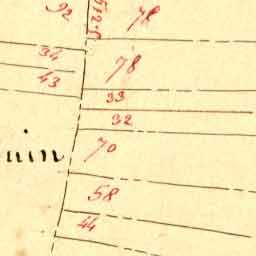 92
78
34
78
43
33
32
uin
70
58
44